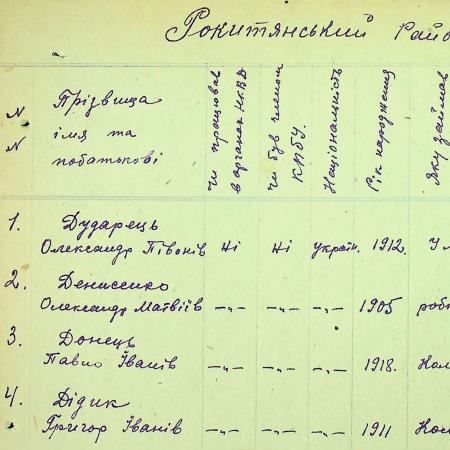 Рокитянський Рай
N N
Прізвища
імя та
побатькові
чи працював
в органах НКВД
чи був членом
КПбУ.
Національність
Рік народження
Яку займав
1. Дударець
Олександр Півонів Ні Ні україн. 1912. У
2. Денисенко
Олександр Матвіїв -„- -„- -„- 1905 роб
3. Донець
Павло Іванів -„- -„- -„- 1918. Кол
4. Дідик
Григор Іванів -„- -„- -„- 1911 Кол